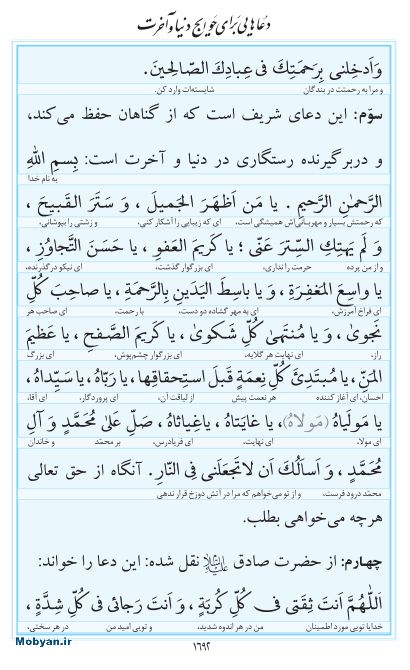 دعاهایی برای حوایج دنیا و آخرت
وَاَدخِلنی بِرَحمَتِكَ فی عِبادِكَ الصّالِحینَ.
و مرا به رحمتت در بندگان شایسته‌ات وارد کن.
سوّم: این دعای شریف است که از گناهان حفظ می‌کند،
و دربرگیرنده رستگاری در دنیا و آخرت است: بِسمِ اللهِ
به نام خدا
الرَّحمٰنِ الرَّحیمِ . یا مَن اَظهَرَ الجَمیلَ ، وَ سَتَرَ القَبیحَ ،
که رحمتش بسیار و مهربانی‌اش همیشگی است، ای که زیبایی را آشکار کنی، و زشتی را بپوشانی،
وَ لَم یَهتِكِ السِّترَ عَنّی ؛ یا كَریمَ العَفوِ ، یا حَسَنَ التَّجاوُزِ ،
و از من پرده حرمت را نداری، ای بزرگوار گذشت، ای نیکو درگذرنده،
یا واسِعَ المَغفِرَةِ ، وَ یا باسِطَ الیَدَینِ بِالرَّحمَةِ ، یا صاحِبَ كُلِّ
ای فراخ آمرزش، ای به مهر گشاده دو دست، با رحمت، ای صاحب هر
نَجوىٰ ، وَ یا مُنتَهىٰ كُلِّ شَكوىٰ ، یا كَریمَ الصَّفحِ ، یا عَظیمَ
راز، ای نهایت هر گلایه، ای بزرگوار چشم‌پوش، ای بزرگ
المَنِّ ، یا مُبتَدِئَ كُلِّ نِعمَةٍ قَبلَ استِحقاقِها ، یا رَبّاهُ ، یا سَیِّداهُ ،
احسان، ای آغاز کننده هر نعمت پیش از لیاقت آن، ای پروردگار، ای آقا،
یا مَولَیاهُ (مَولاهُ)، یا غایَتاهُ ، یا غِیاثاهُ ، صَلِّ عَلىٰ مُحَمَّدٍ وَ آلِ
ای مولا، ای نهایت، ای فریادرس، بر محمّد و خاندان
مُحَمَّدٍ ، وَ اَسأَلُكَ اَن لاتَجعَلَنی فِی النّارِ . آنگاه از حق تعالی
محمّد درود فرست، و از تو می‌خواهم که مرا در آتش دوزخ قرار ندهی
هرچه می‌خواهی بطلب.
چهارم: از حضرت صادق علیه‌السلام نقل شده: این دعا را خواند:
اَللّٰهُمَّ اَنتَ ثِقَتی فی كُلِّ كُربَةٍ ، وَ اَنتَ رَجائی فی كُلِّ شِدَّةٍ ،
خدایا تویی مورد اطمینان من در هر اندوه شدید، و تویی امید من در هر سختی،
۱۶۹۲
Mobyan.ir